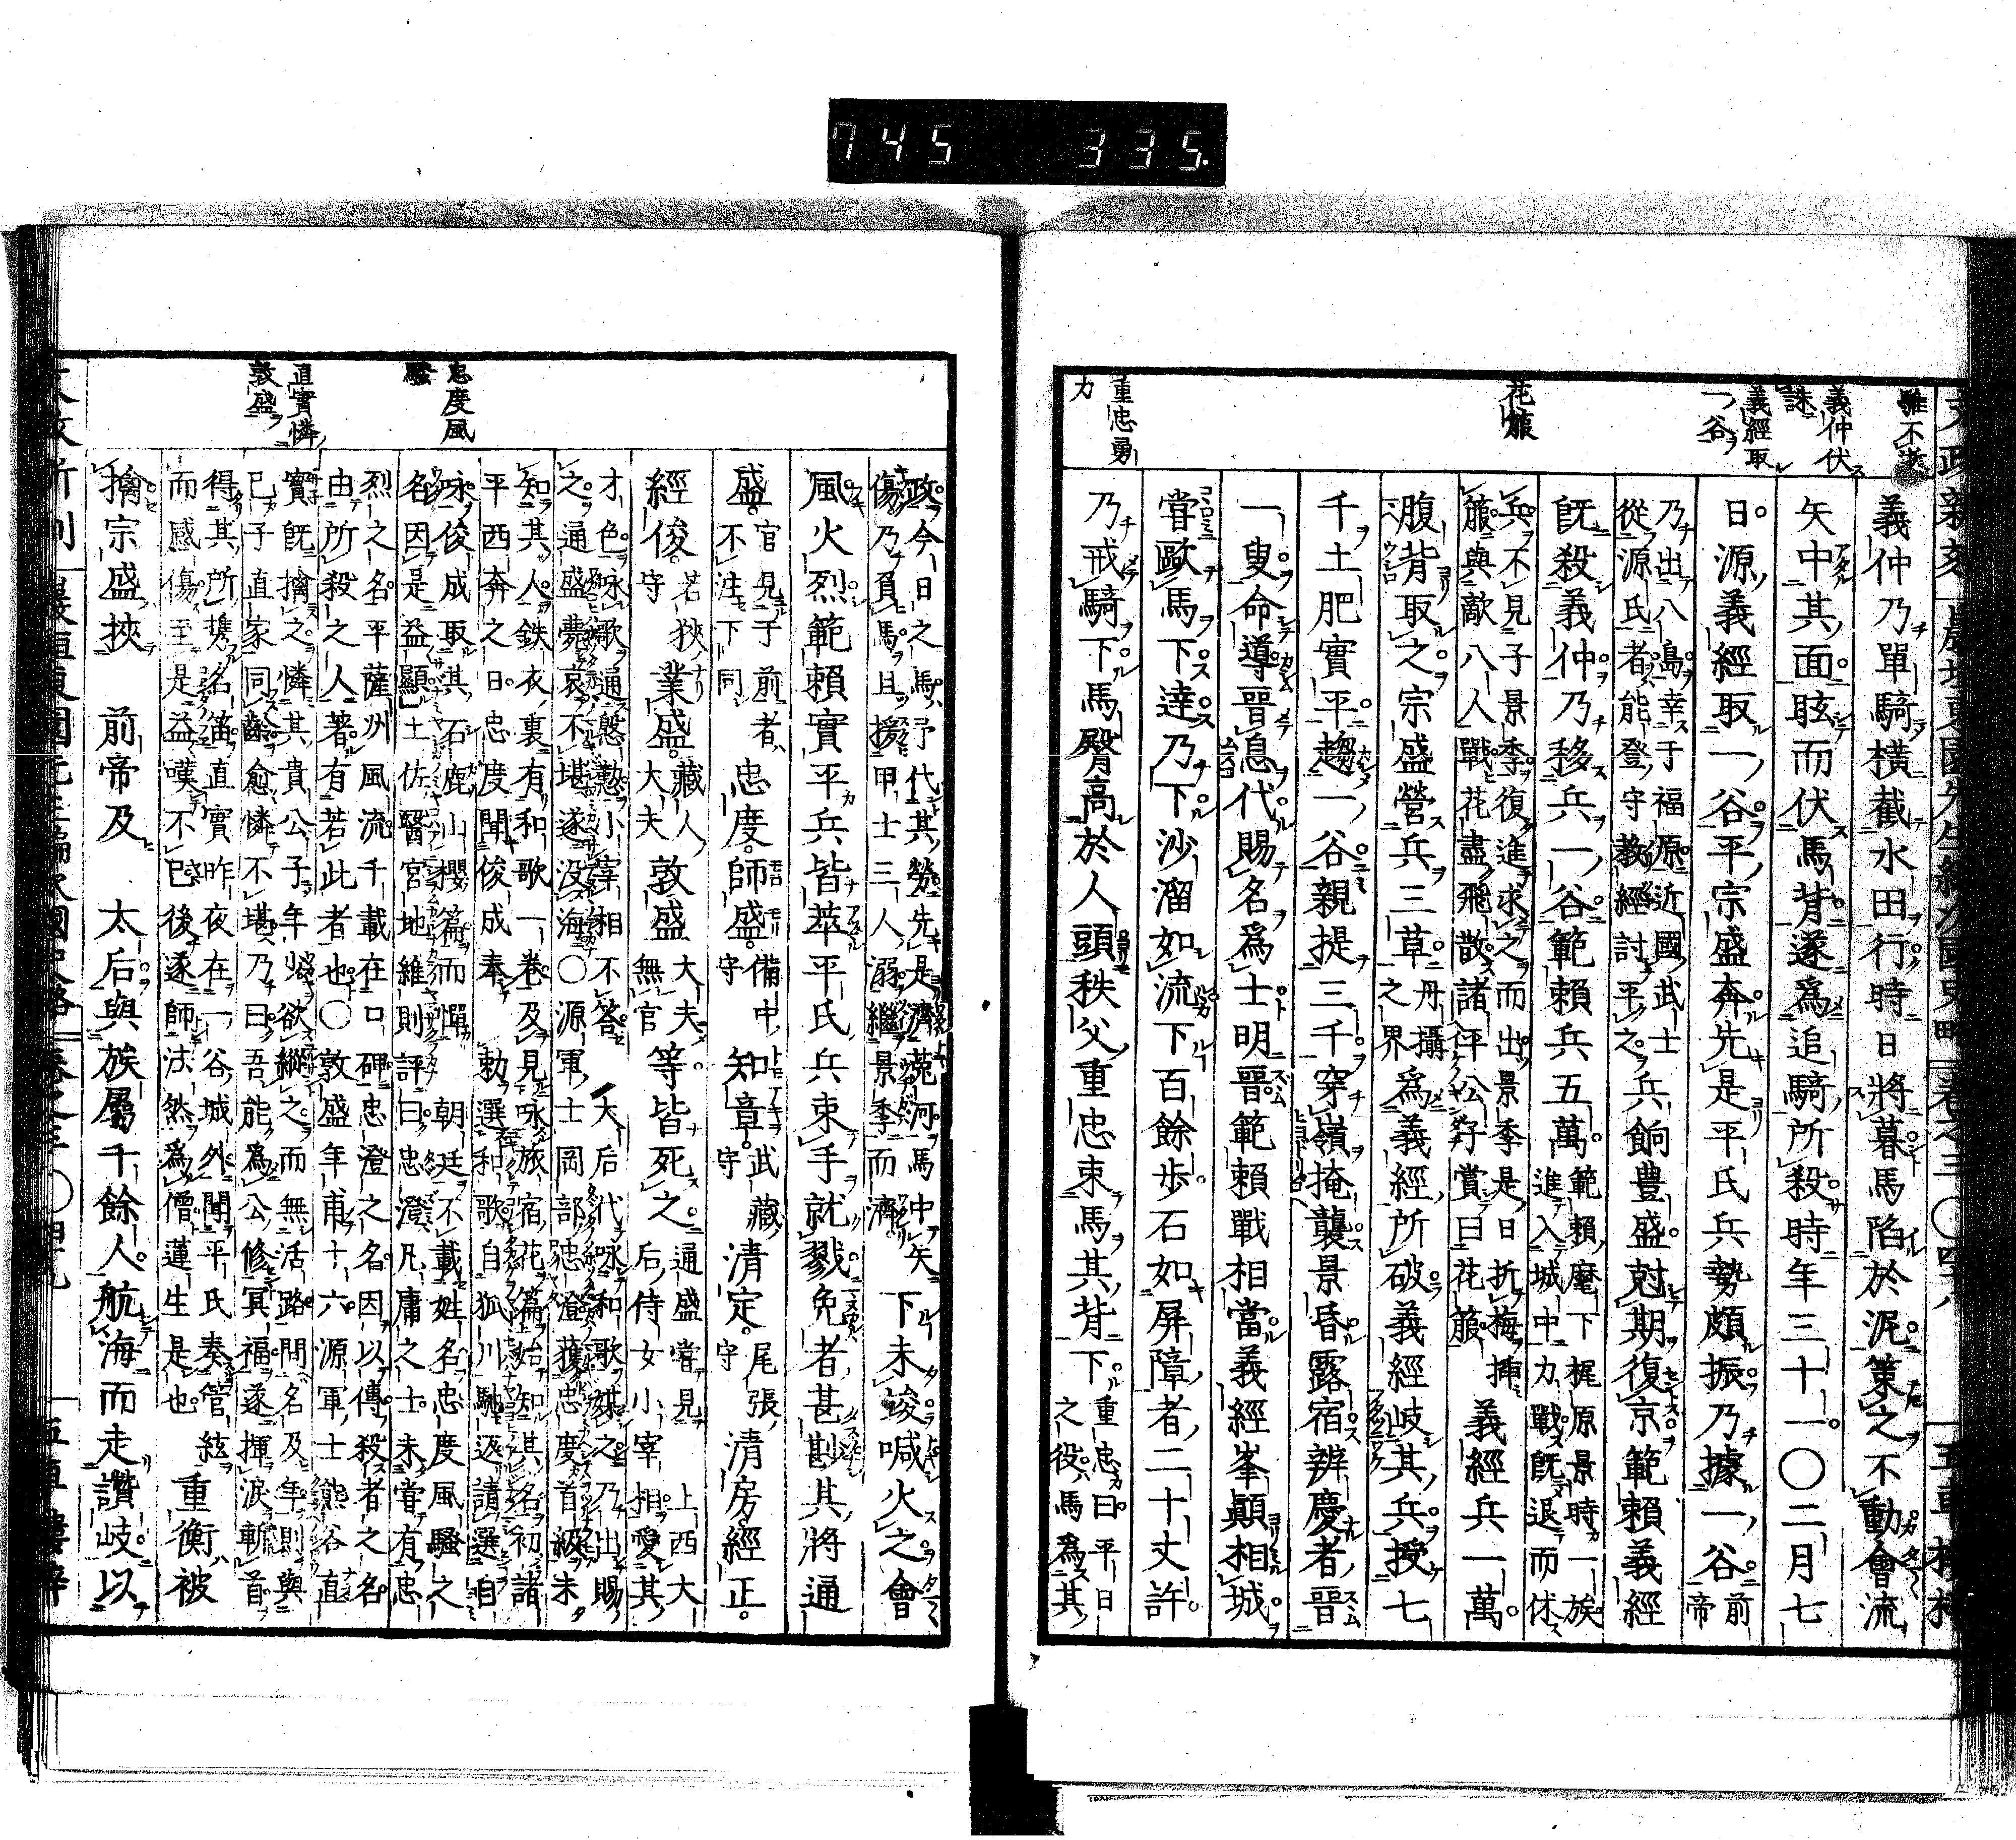 745 335.
騅不逝
義仲伏誅
義經取一ノ谷
花箙
重忠勇力
義仲乃單騎横截水田行時日將暮馬陷於泥策之不動會流
矢中其面眩而伏馬背遂爲追騎所殺時年三十一〇二月七
日源義經取一谷平宗盛奔先是平氏兵勢頗振乃據一谷前帝
乃出八島幸于福原近國武士
從源氏者能登守教經討平之兵餉豊盛尅期復京範頼義經
既殺義仲乃移兵一谷範頼兵五萬範頼麾下梶原景時一族
進入城中力戰既退而休
兵不見子景季復進求之而出景季是日折梅挿
箙與敵八人戰花盡飛散諸平公子賞曰花箙義經兵一萬
腹背取之宗盛營兵三草丹攝之界爲義經所破義經岐其兵授七
千土肥實平趨一谷親提三千穿嶺掩襲景昏露宿辨慶者晋
一叟命導晋息代賜名爲士明晋範頼戰相當義經峯顛相城
嘗歐馬下達乃下沙溜如流下百餘歩石如屏障者二十丈許
乃戒騎下馬臀高於人頭秩父重忠束馬其背下重忠曰平日
之役馬爲其
忠度風騷
直實憐敦盛
政今日之馬予代其勞先是濟荒河馬中矢
傷乃負馬且援甲士三人溺繼景季而濟下未竣喊火之會
風火烈範頼實平兵皆萃平氏兵束手就戮免者甚尠其將通
盛官見于前者
不注下同忠度師盛備中守知章武藏守清定尾張守清房經正
經俊若狹守業盛藏人大夫敦盛大夫無官等皆死之通盛嘗見上西大
后侍女小宰相愛其
才色咏歌通慇懃小宰相不答大后代咏和歌媒之乃出賜
之通盛斃哀不堪遂没海〇源軍士岡部忠澄獲忠度首級未
知其人鉄衣裏有和歌一卷及見咏旅宿花篇始知其名初諸
平西奔之日忠度聞俊成奉勅選和歌自狐川馳返請選自
咏俊成取其石鹿山櫻篇而憚朝廷不載姓名忠度風騷之
名因是益顯土佐醫宮地維則評曰忠澄凡庸之士未嘗有忠
烈之名平薩州風流千載在口碑忠澄之名因以傳殺者之名
由所殺之人著有若此者也〇敦盛年甫十六源軍士熊谷直
實既擒之憐其貴公子年少欲縱之而無活路問名及年則與
已子直家同齡愈憐不堪乃曰吾能爲公修冥福遂揮淚斬首
得其所携名笛直實昨夜在一谷城外聞平氏奏管絃
而感傷至是益嘆不已後遂師法然爲僧蓮生是也重衡被
擒宗盛挾前帝及太后與族屬千餘人航海而走讃岐以